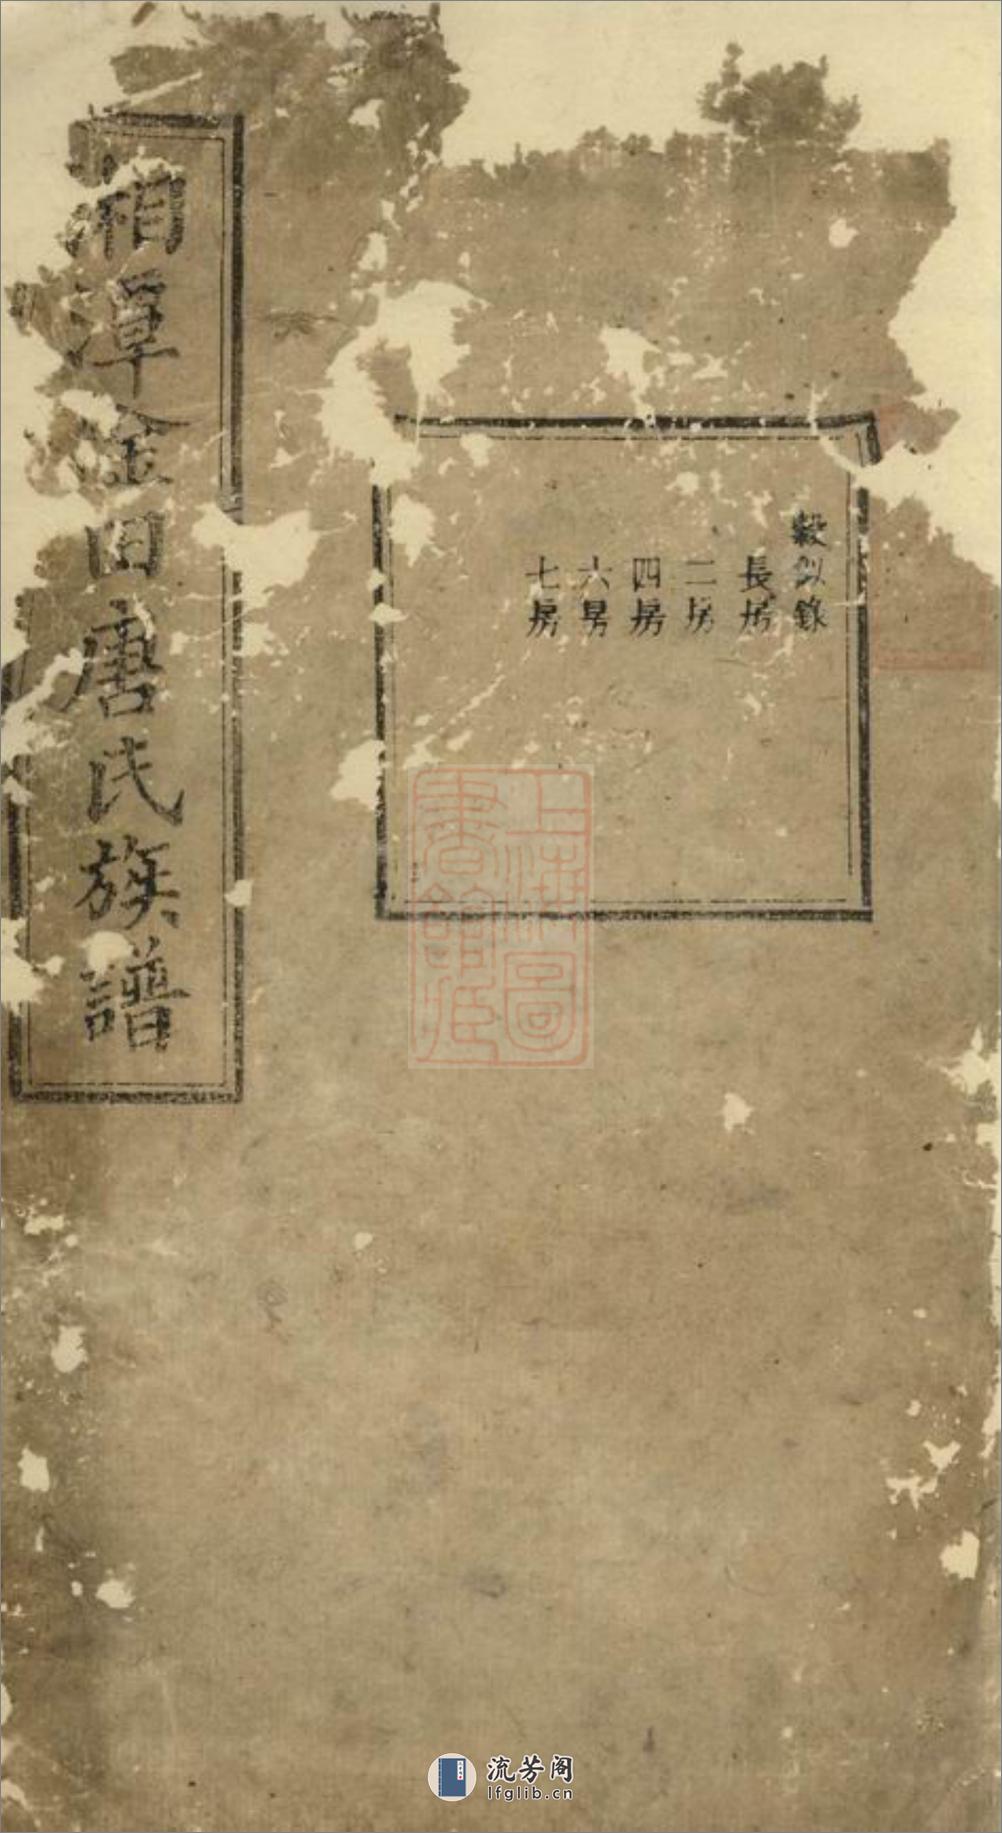 湘潭金田唐氏族譜
縠似錄
長房
二房
四房
六房
七房
上海圖
書館藏
流芳阁
lfglib.cn